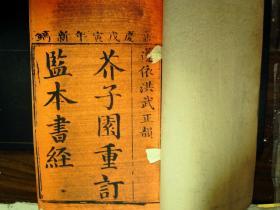 嘉慶戊寅年新鐫
遵依洪武正韻
芥子園重訂
監本書經